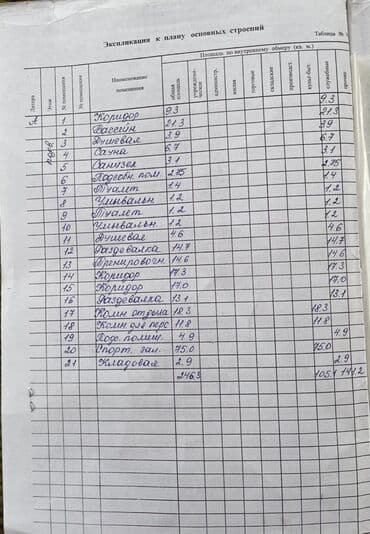 Экспликация к плану основных строений
Таблица №
Площадь по внутреннему обмеру (кв. м.)
Литера Этаж № помещения № помещения Наименование помещения общая площадь учрежденческие администр. жилая торговые складские производст. культ-быт. служебные прочие
А 1 Коридор 9.3 9.3
2 Бассейн 21.3 21.3
3 Душевая 3.9 3.9
4 Сауна 6.7 6.7
5 Санузел 3.1 3.1
6 Подсобн. пом. 2.75 2.75
7 Туалет 1.4 1.4
8 Умывальн 1.2 1.2
9 Туалет 1.2 1.2
10 Умывальн. 1.2 1.2
11 Душевая 4.6 4.6
12 Раздевалка 14.7 14.7
13 Тренировочн. 14.6 14.6
14 Коридор 17.3 17.3
15 Коридор 17.0 17.0
16 Раздевалка 13.1 13.1
17 Комн отдыха 18.3 18.3
18 Комн для перс 11.8 11.8
19 Под. помещ. 4.9 4.9
20 Спорт. зал. 75.0 75.0
21 Кладовая 2.9 2.9
246.3 105.1 141.2